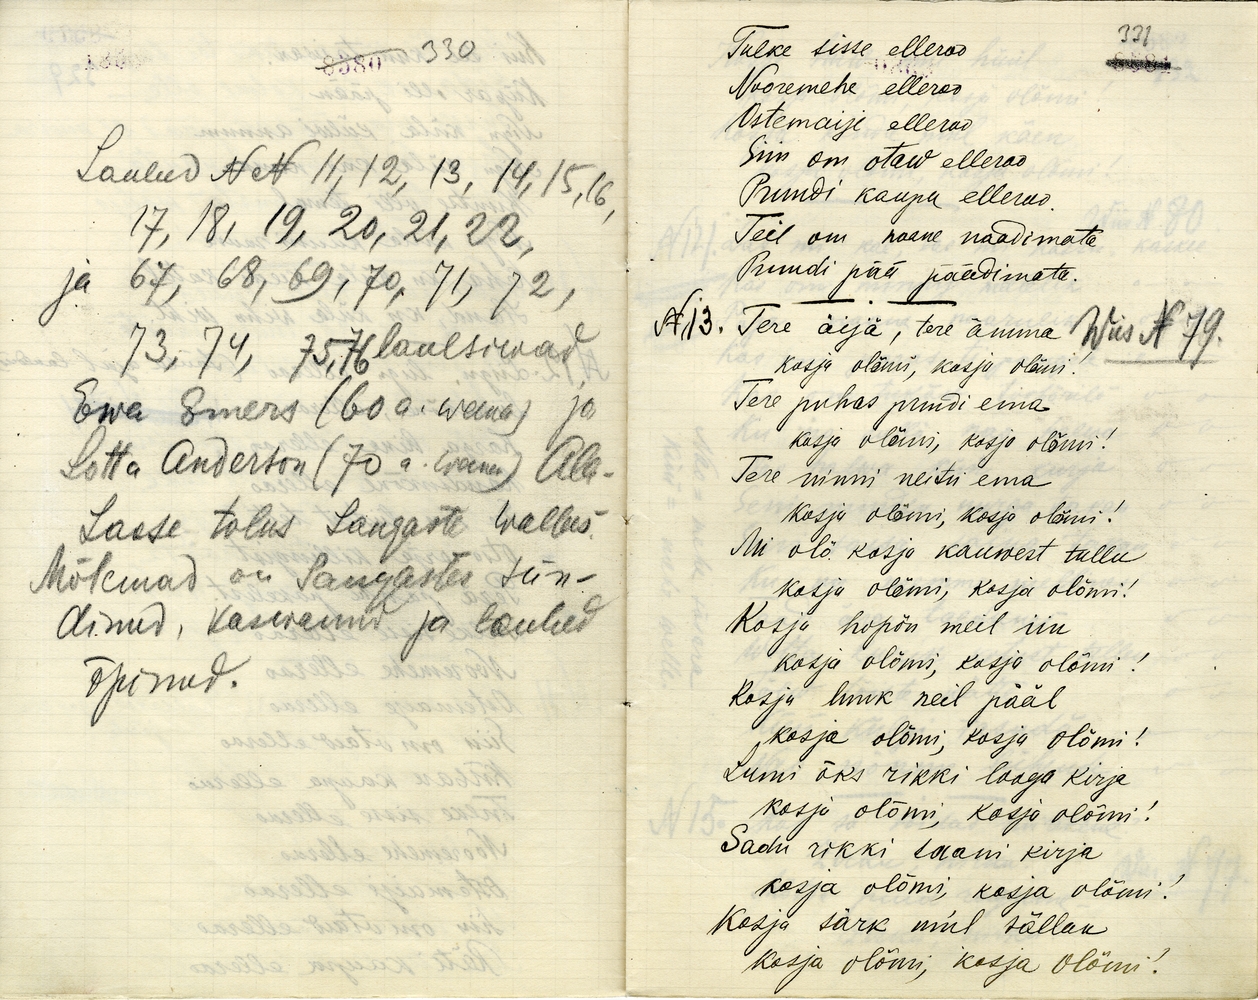 8580 330
Laulud NN 11, 12, 13, 14, 15, 16,
17, 18, 19, 20, 21, 22,
ja 67, 68, 69, 70, 71, 72,
73, 74, 75, 76 laulsiwad
Ewa Emers (60 a. wana) ja
Lotta Anderson (70 a. wana) Ala-
Lasse talus Sangaste wallas.
Mõlemad on Sangastes sün-
dinud, kaswanud ja laulud
õpinud.
331
8581
Tulke sisse ellerao
Nooremehe ellerao
Ostemaije ellerao
Siin om otaw ellerao
Pruudi kaupa ellerao.
Teil om naadimata
Pruudi pää päädimata.
N 13. Tere äijä, tere ämma Wiis N 79.
kosja olõmi, kosja olõmi!
Tere puhas pruudi ema
kosja olõmi, kosja olõmi!
Tere ninni neitsi ema
kosja olõmi, kosja olõmi!
Mi olõ kosja kauwest tullu
kosja olõmi, kosja olõmi!
Kosja hopõn meil iin
kosja olõmi, kosja olõmi!
Kosja luuk neil pääl
kosja olõmi, kosja olõmi!
Lumi õks rikki looga kirja
kosja olõmi, kosja olõmi!
Sadu rikki saani kirja
kosja olõmi, kosja olõmi!
Kosja särk mul sällän
kosja olõmi, kosja olõmi!